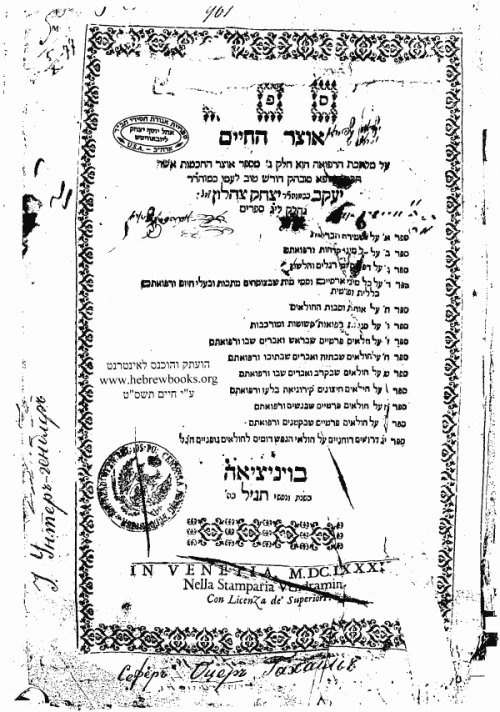 961
ספר
אוצר החיים
על מלאכת הרפואה הוא חלק ג' מספר אוצר החכמות אשר
מובהק דורש טוב לעמו כמוהר"ר
יעקב בכמוהר"ר יצחק צהלון
נחלק לי"ג ספרים
ספר א' על שמירת הבריאות
ספר ב' על מיני קדחות ורפואתם
ספר ג'
ספר ד' על כל מיני וסמי מות שבצומחים מתכות ובעלי חיים ורפואתם
בכללית ופרטית
ספר ה' על אותות וסבות החולאים
ספר ו' על רפואות פשוטות ומורכבות
ספר ז' על חולאים פרטיים שבראש ואברים שבו ורפואתם
ספר ח' על חולאים שבחזה ואברים שבתוכו ורפואתם
ספר ט' על חולאים שבקרב ואברים שבו ורפואתם
ספר י' על חולאים חיצונים קירוגיאה בלעז ורפואתם
ספר יא על חולאים פרטיים שבנשים ורפואתם
ספר יב על חולאים פרטיים שבקטנים ורפואתם
ספר יג דרושים רוחניים על חולאי הנפש דומים לחולאים גופניים הנ"ל
הועתק והוכנס לאינטרנט
www.hebrewbooks.org
ע"י חיים תשס"ט
ספרית אגודת חסידי חב"ד
אהל יוסף יצחק
ליובאוויטש
U.S.A.
בויניציאה
בשנת
IN VENETIA, M.DC.LXXXI
Nella Stamparia Vendramin.
Con Licenza de' Superiori.
Сеферъ Оцеръ Гахаимъ